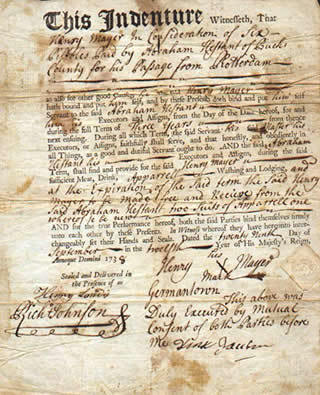 This Indenture Witnesseth, That
Henry Mayer In Consideration of Six
Paid by Abraham Hestant of Bucks
County for his Passage from Rotterdam
as also for other good Causes, he the said Henry Mayer
hath bound and put him self, and by these Presents doth bind and put him self
Servant to the said Abraham Hestant
Executors and Assigns, from the Day of the Date hereof, for and
during the full Term of Three Years
next ensuing. During all which Term, the said Servant his said
Executors, or Assigns, faithfully shall serve, and that honestly, and obediently in
all Things, as a good and dutiful Servant ought to do. AND the said Abraham
Hestant his Executors and Assigns, during the said
Term, shall find and provide for the said Henry Mayer
sufficient Meat, Drink, Apparrel Washing and Lodging, and
at the Expiration of the said term the said Henry
Mayer to be made free and Receive from the
said Abraham Hestant two Suits of Apparrell one
whereof is to be new
AND for the true Performance hereof, both the said Parties bind themselves firmly
unto each other by these Presents. In Witness whereof they have hereunto inter-
changeably set their Hands and Seals. Dated the
September in the twelfth Year of His Majesty's Reign,
Annoque Domini 1738
Henry Mayer
Sealed and Delivered in
the Presence of us
Henry
Rich Johnson
Germantown
This above was
Duly Executed by Mutual
Consent of both Parties before
me